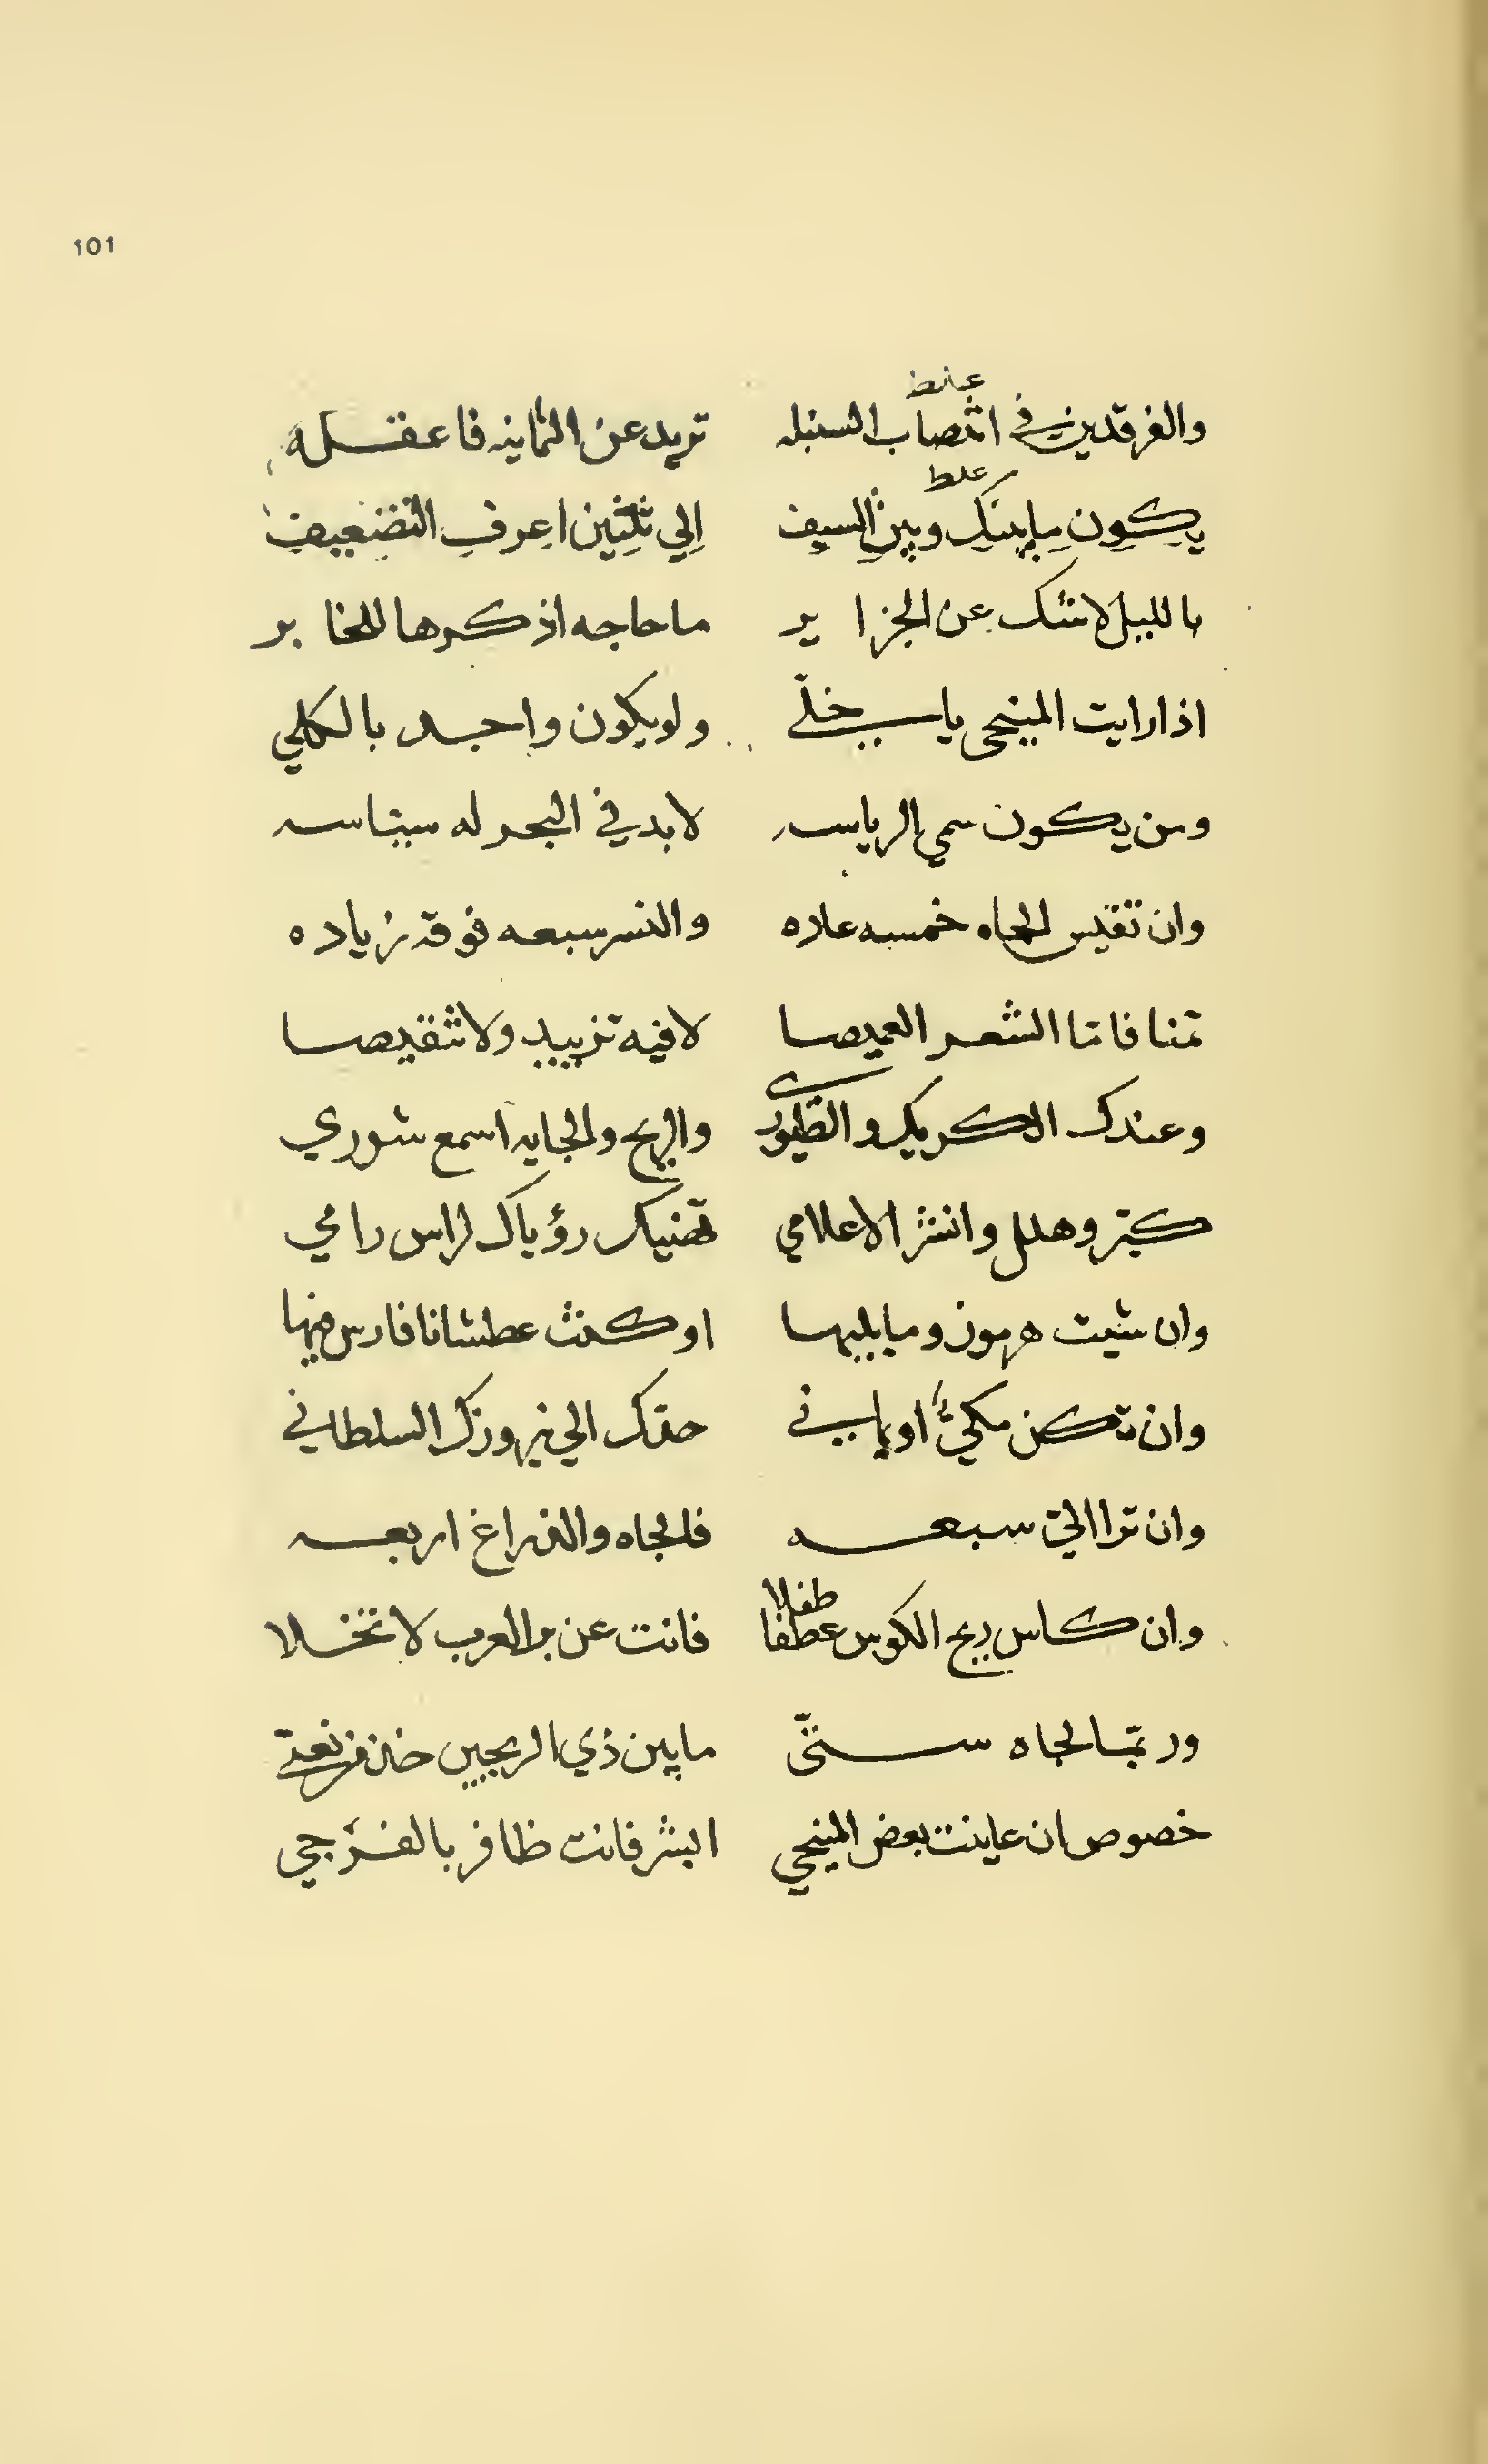 101
غلط
والفرقدين في انتصاب السنبله تزيد عن الثمانيه فاعقله
غلط
يكون ما بينك وبين السيف الي ثلثين اعرف التضعيف
بالليل لا شك عن الجزاير ما حاجه اذكرها للخابر
اذا رايت المينجي يا خلّي ولو يكون واحد بالكلي
ومن يكون سمي الرياسه لابد في البحر له سياسه
وان تقيس الجاه خمسه عاده والنسر سبعه فوقه زياده
تمنا فاتا الشعر العميصا لا فيه تزييد ولا تنقيصا
وعندك الكريك والطيوري والريح والمجايه اسمع شوري
كبّر وهلل وانشر الاعلامي تهنيك رؤياك لراس رامي
وان شيت هرموز وما يليها او كنت عطشانا فارس فيها
وان تكن مكيّ او يماني حدّك الي نيروزك السلطاني
وان ترا التي سبعه فالجاه والذراع اربعه
طفلا
وان كاس ريح الكوس عطفا فانت عن بر العرب لا تخلا
وربّما الجاه ستّي ما بين ذي الريحين خذ نعتي
خصوص ان عاينت بعض المينجي ابشر فانت ظافر بالفرجي